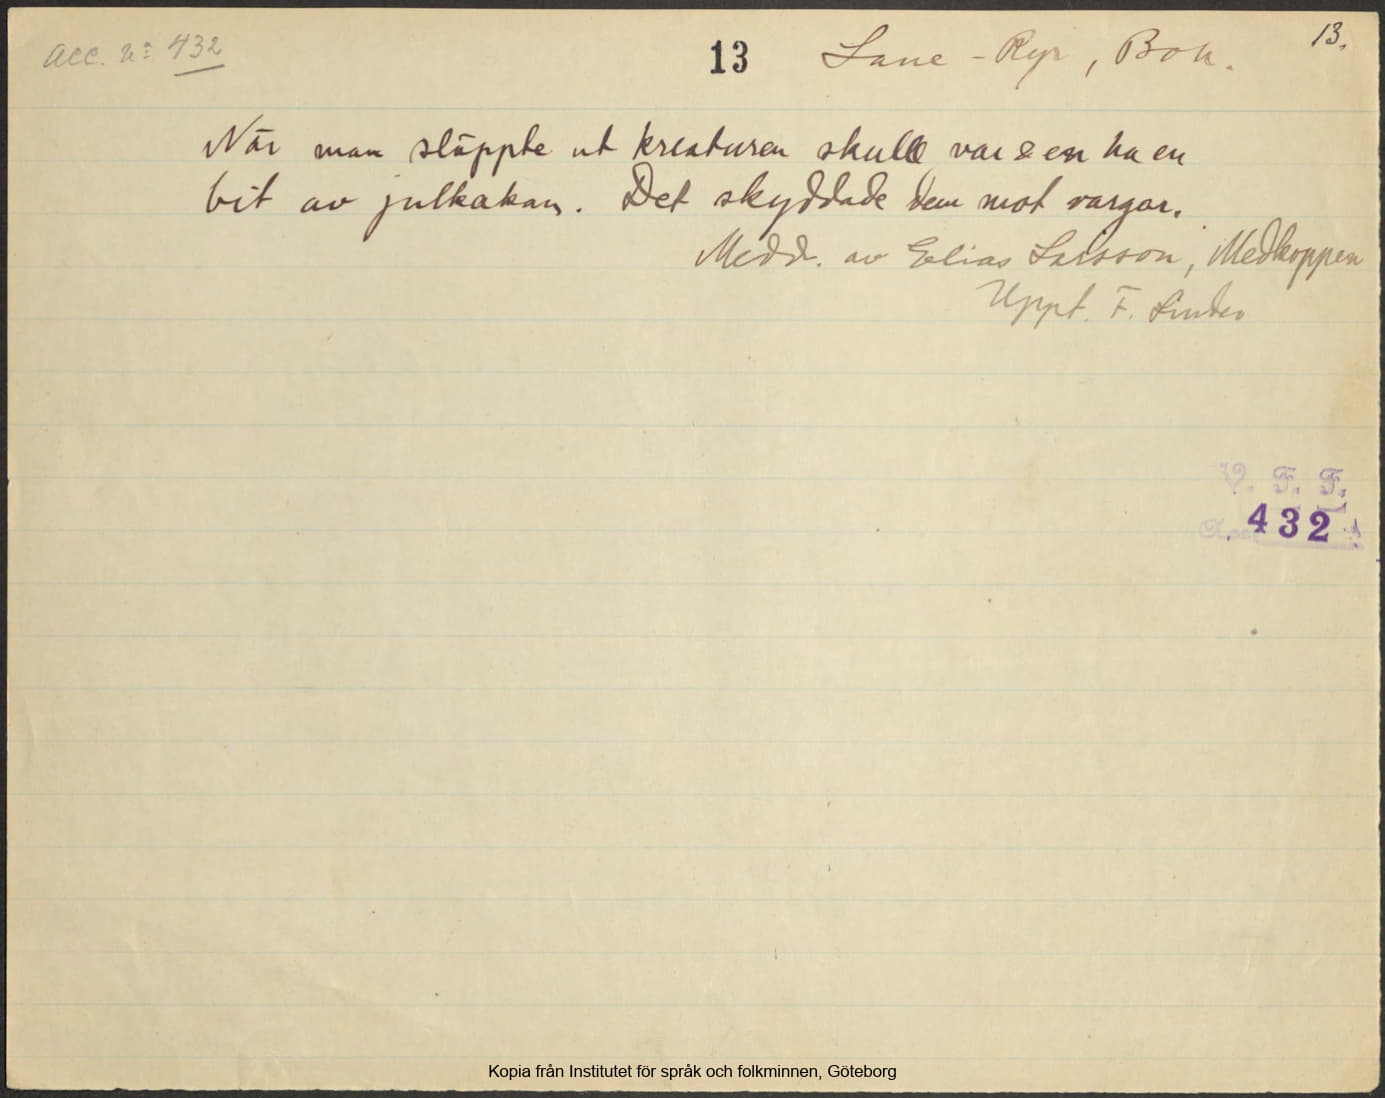 Acc. Nº 432
13
Lane-Ryr, Boh.
13.
När man släppte ut kreaturen skulle var & en ha en
bit av julkakan. Det skyddade dem mot vargar.
Medd. av Elias Larsson, Medkoppen
Uppt. F. Linder
V. F. F.
432
Kopia från Institutet för språk och folkminnen, Göteborg